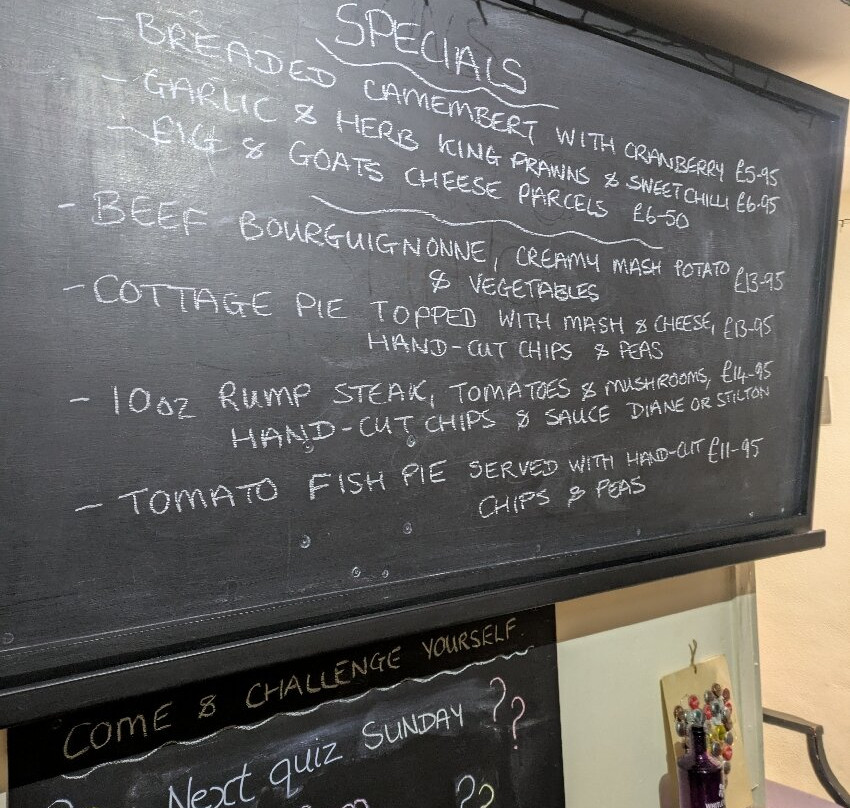 SPECIALS
- BREADED CAMEMBERT WITH CRANBERRY £5-95
- GARLIC & HERB KING PRAWNS & SWEET CHILLI £6.95
- FIG & GOATS CHEESE PARCELS £6-50
- BEEF BOURGUIGNONNE, CREAMY MASH POTATO £13-95
& VEGETABLES
- COTTAGE PIE TOPPED WITH MASH & CHEESE, £13-95
HAND-CUT CHIPS & PEAS
- 10oz RUMP STEAK, TOMATOES & MUSHROOMS, £14-95
HAND-CUT CHIPS & SAUCE DIANE OR STILTON
- TOMATO FISH PIE SERVED WITH HAND-CUT £11-95
CHIPS & PEAS
COME & CHALLENGE YOURSELF
Next quiz SUNDAY ??
??